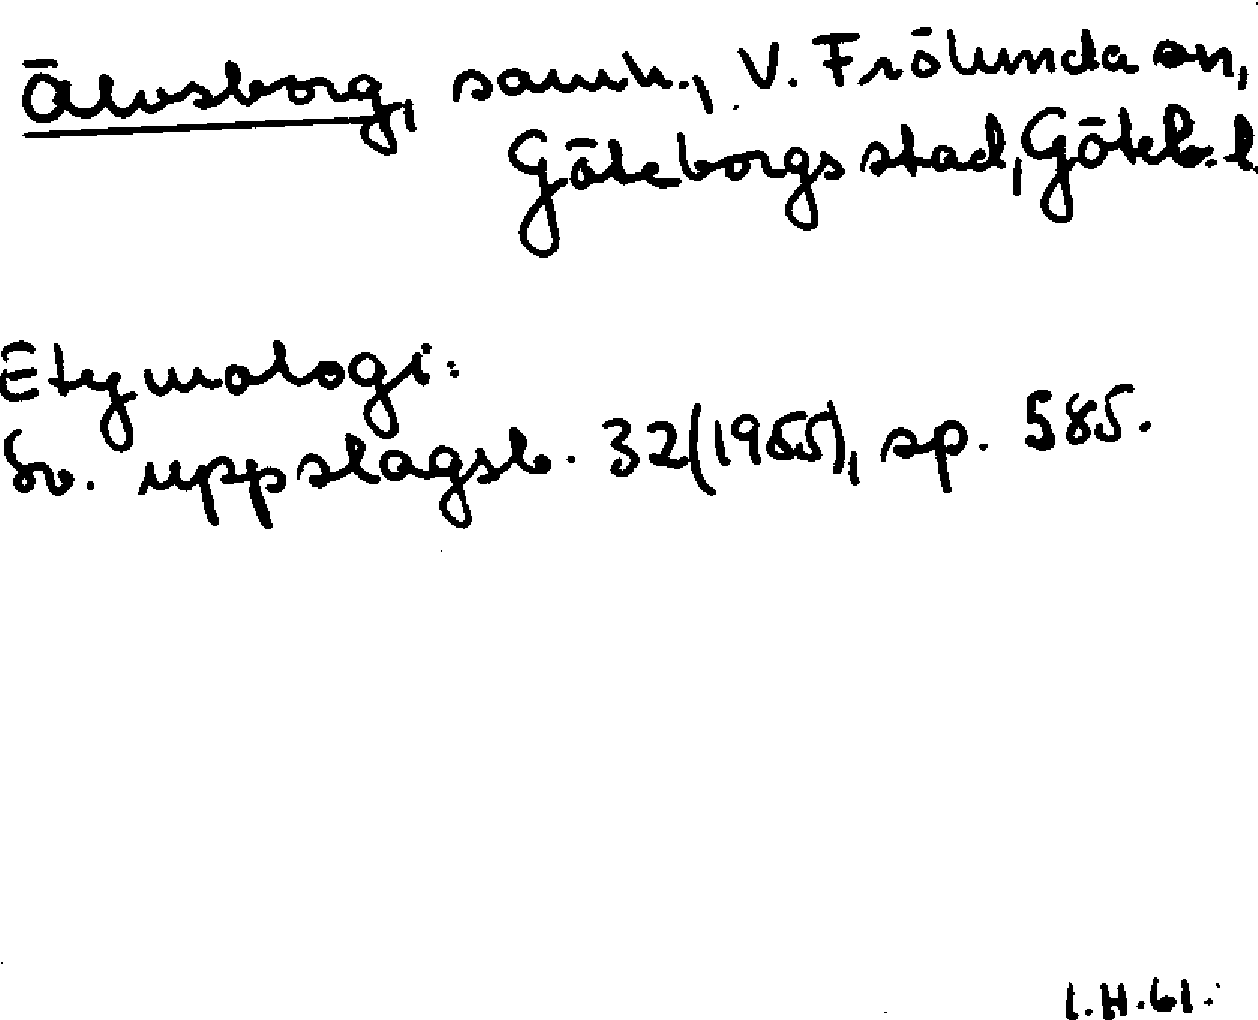 Älvsborg, samh., V. Frölunda sn,
Göteborgs stad, Göteb. l
Etymologi:
Sv. uppslagsb. 32 (1955), sp. 585.
I.H.61.